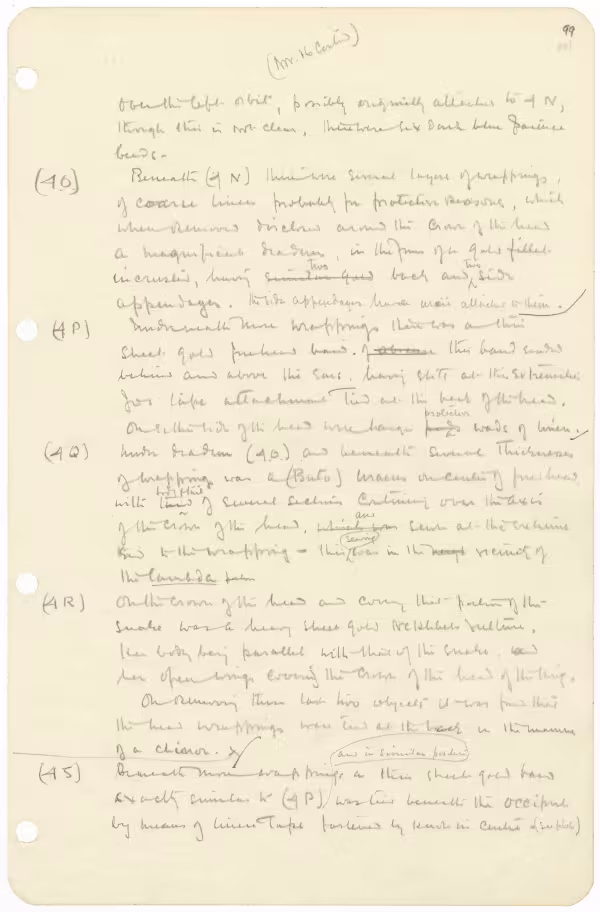 99
(Nov. 16 Contd)
over the left orbit, possibly originally attached to 4 N,
though this is not clear, there were six dark blue faience
beads.
(4O) Beneath (4 N) there were several layers of wrappings,
of coarse linen probably for protective reasons, which
when removed disclosed around the crown of the head
a magnificent diadem, in the form of a gold fillet
incrusted, having two back and two side
appendages. The side appendages have a uraei attached to them.
(4P) Underneath more wrappings there was a thin
sheet gold forehead band. this band ended
behind and above the ears, having slits at the extremities
for tape attachment tied at the back of the head.
On the side of the head were large protective wads of linen.
(4Q) Under diadem (4O) and beneath several thicknesses
of wrappings was a (Buto) uraeus on centre of forehead
with body of several sections continuing over the axis
of the crown of the head, and sewn at the extreme
end to the wrapping – this sewing was in the vicinity of
the lambda
(4R) On the crown of the head and covering that portion of the
snake was a heavy sheet gold Nekhbet vulture,
her body being parallel with that of the snake,
her open wings covering the crown of the head of the King.
On removing these last two objects it was found that
the head wrappings were tied in the manner
of a chignon. x
(4S) Beneath more wrappings a thin sheet gold band and in similar position
exactly similar to (4P) was tied beneath the occiput
by means of linen tape fastened by knots in centre